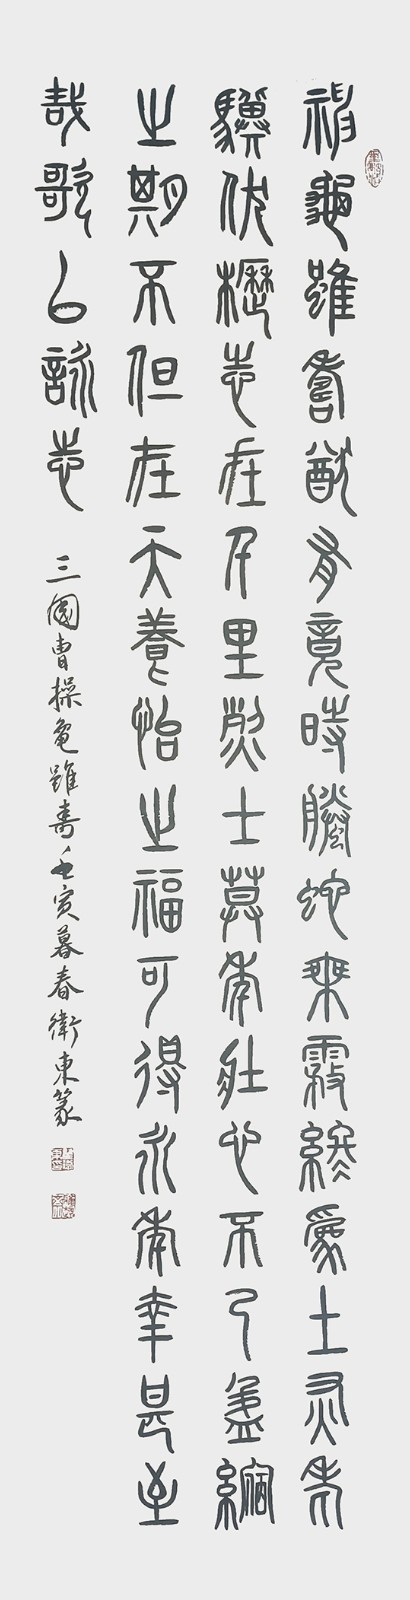 神龜雖壽猷有竟時騰蛇乘霧終爲土灰老
驥伏櫪志在千里烈士莫年壯心不已盈縮
之期不但在天養怡之福可得永年幸甚至
哉歌以詠志
三國曹操龜雖壽壬寅暮春衛東篆